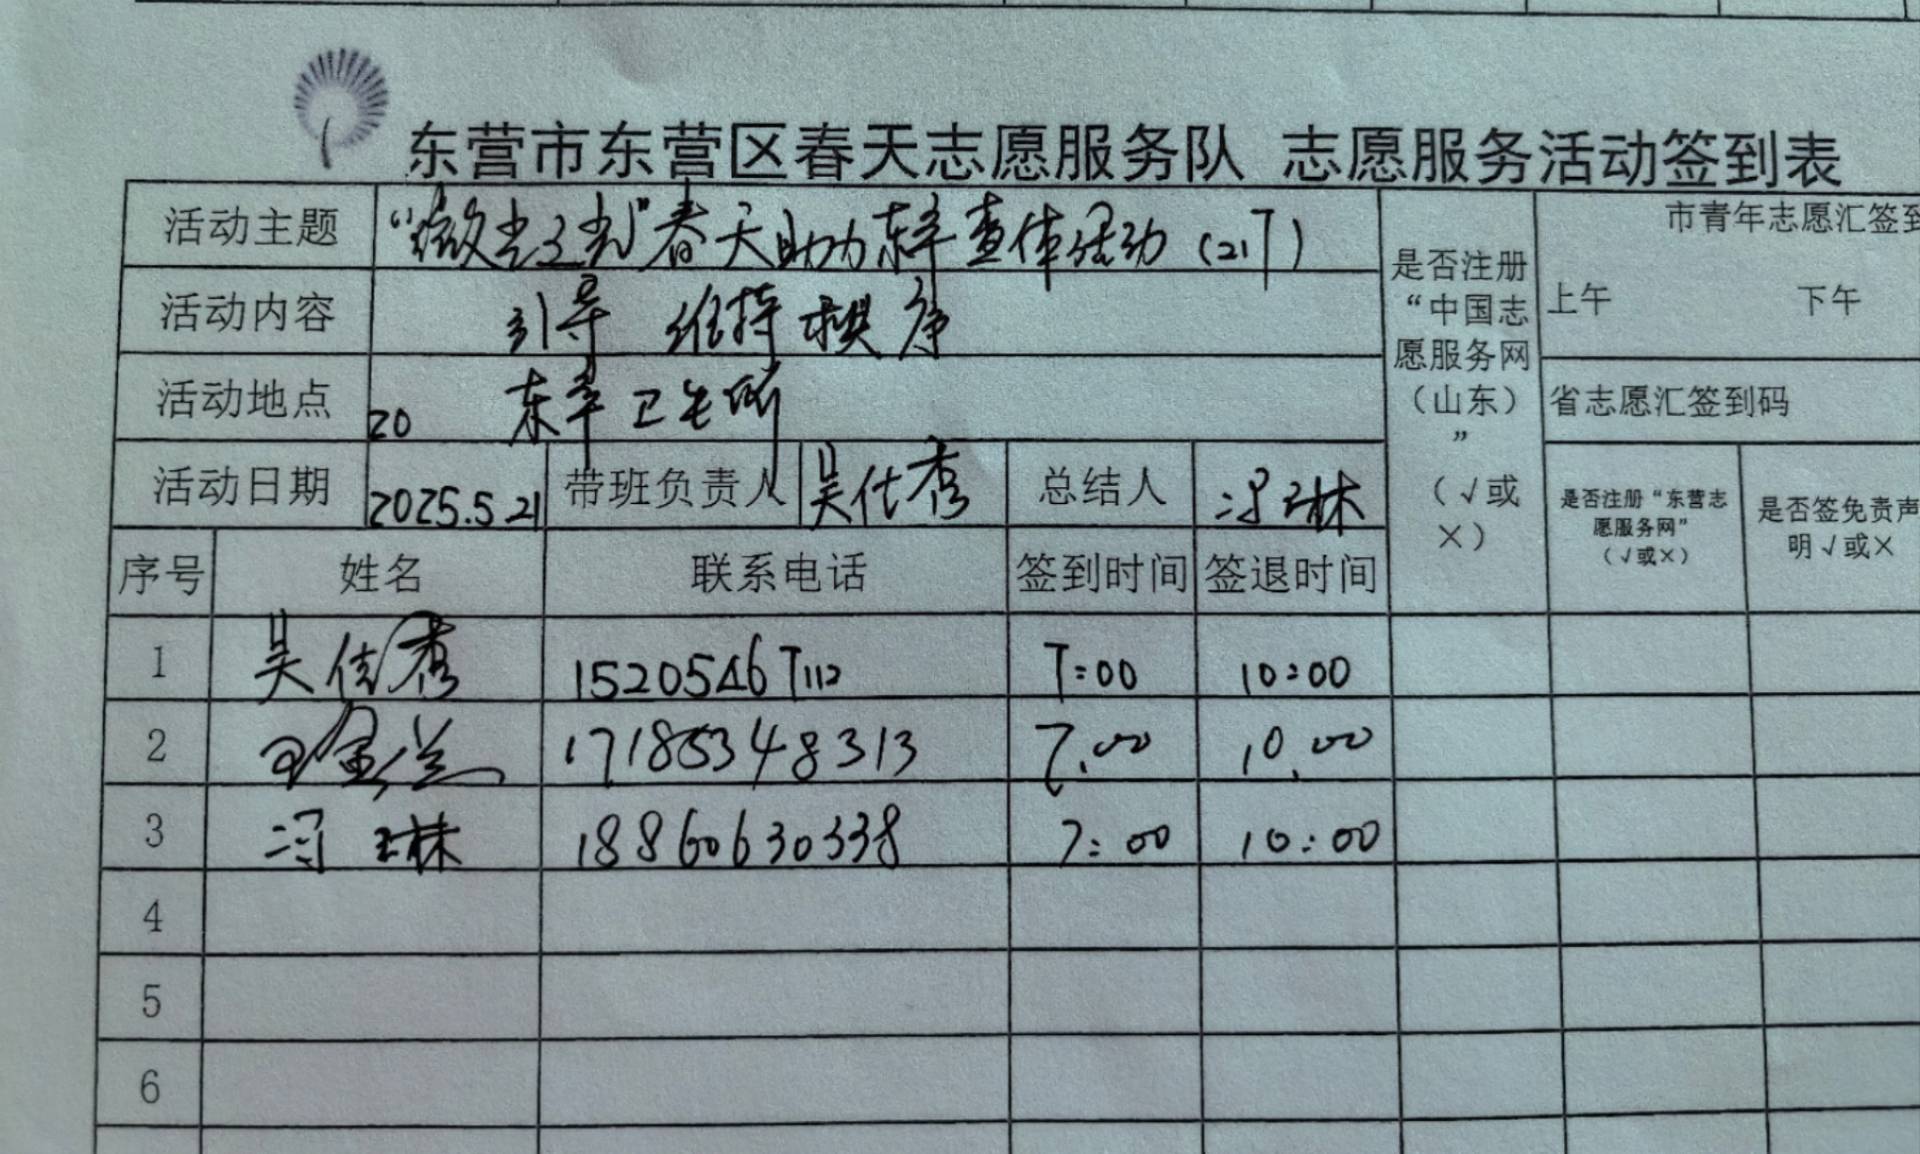 东营市东营区春天志愿服务队 志愿服务活动签到表
活动主题 “微光之光”春天助力东辛查体活动（217）
活动内容 引导 维持 序
活动地点 20 东辛卫生所
活动日期 2025.5.21 带班负责人 吴仕秀 总结人 冯琳
是否注册
“中国志
愿服务网
（山东）
”
（√或
×）
市青年志愿汇签到
上午 下午
省志愿汇签到码
是否注册“东营志
愿服务网”
（√或×）
是否签免责声
明√或×
序号 姓名 联系电话 签到时间 签退时间
1 吴佳秀 15205467112 7:00 10:00
2 17185348313 7.00 10.00
3 冯琳 18860630338 7:00 10:00
4
5
6